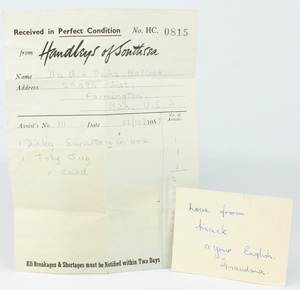 Received in Perfect Condition No. HC. 0815
from Handleys of Southsea
Name
Address
Farmington
U.S.A.
Assist's No. Date No. of Articles
1 Dinky Saparty in box 1
1 Toby Jug 1
+ card
All Breakages & Shortages must be Notified within Two Days
Love from
Mack
& your English
Grandma